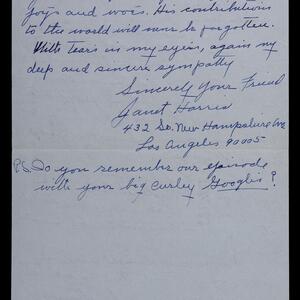 joys and woes. His contributions
to the world will never be forgotten.
With tears in my eyes, again my
deep and sincere sympathy
Sincerely Your Friend
Janet Harris
432 So. New Hampshire Ave
Los Angeles 90005
P.S. Do you remember our episode
with your big curley Googlis?